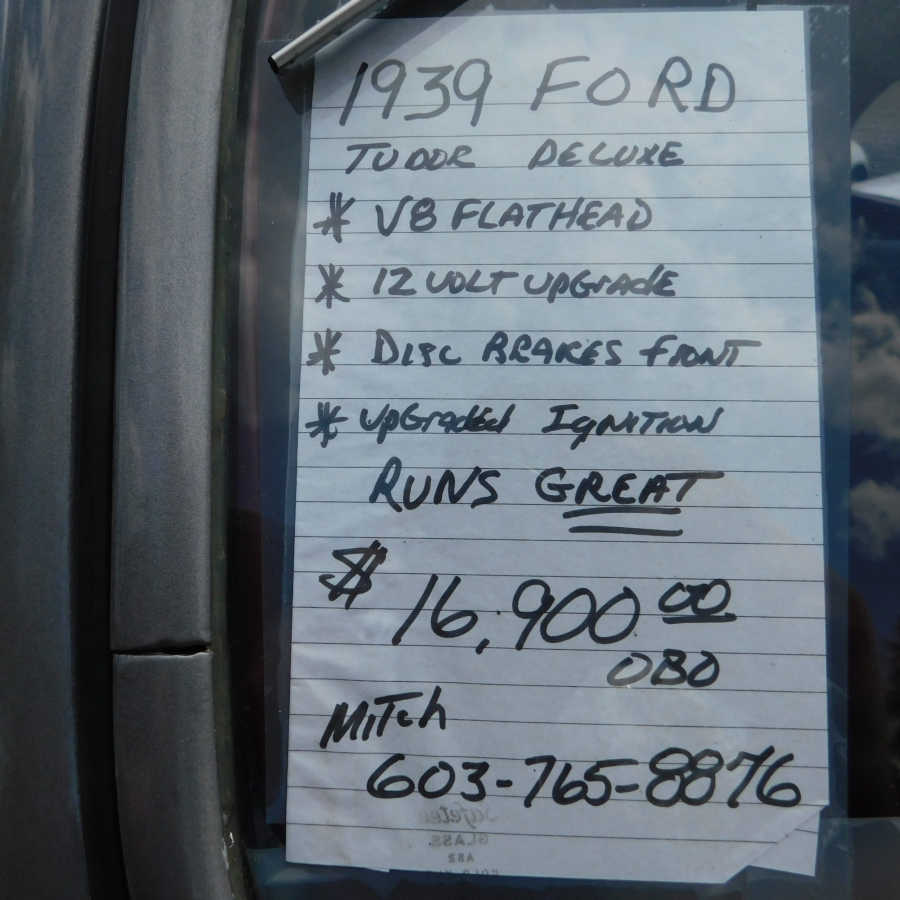 1939 FORD
TUDOR DELUXE
* V8 FLATHEAD
* 12 VOLT UPGrAdE
* DISC BRAKES frONT
* UpGraded IgNITION
RUNS GREAT
$ 16,900.00
OBO
MITch
603-765-8876
Safetee
GLASS